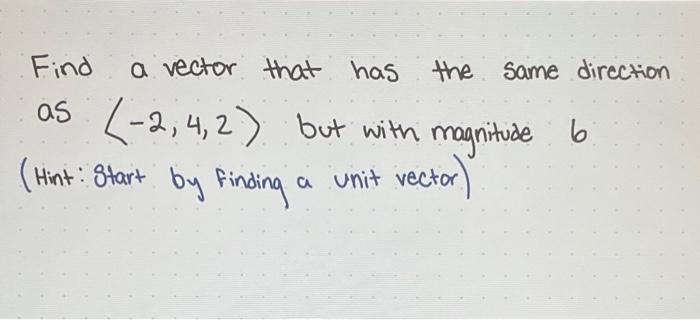 Find a vector that has the same direction
as ⟨-2, 4, 2⟩ but with magnitude 6
(Hint: Start by finding a unit vector)